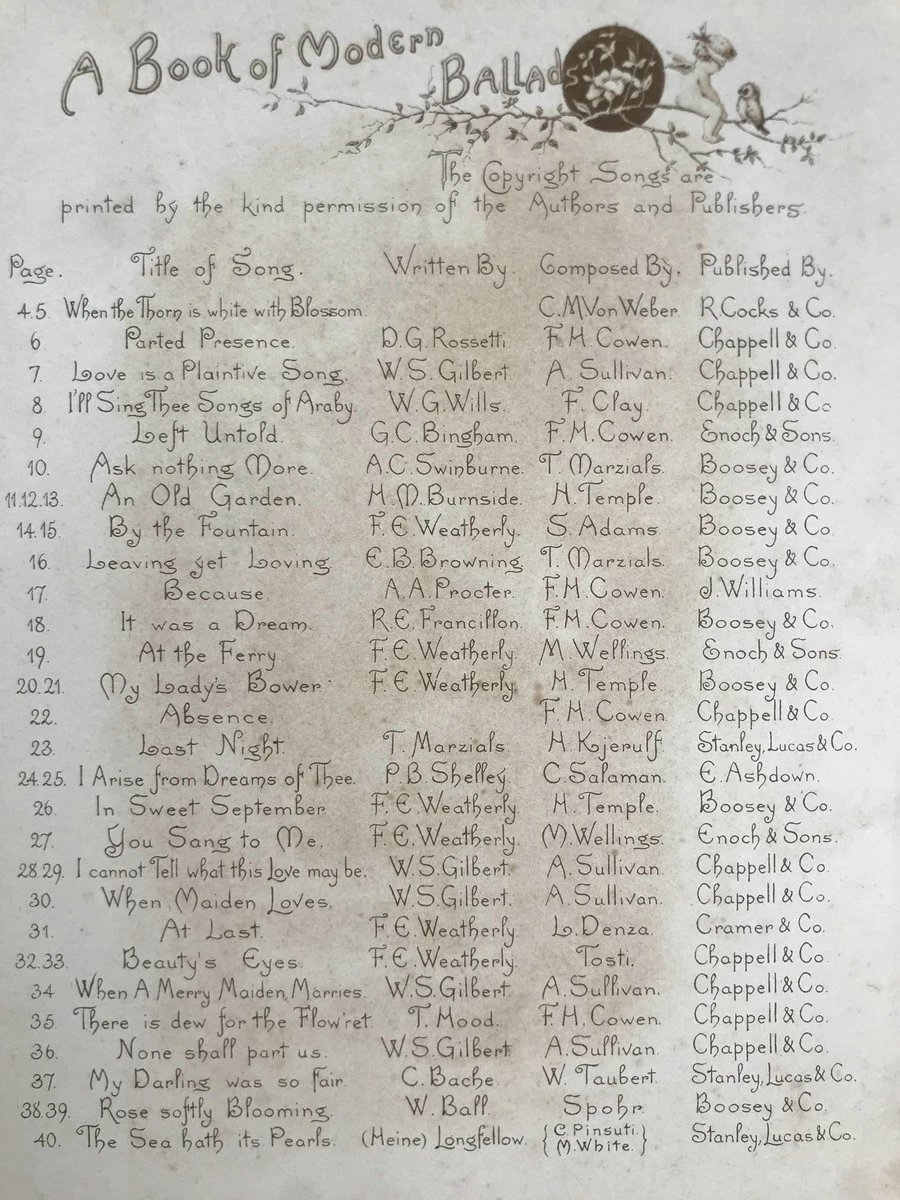 A Book of Modern
Ballads
The Copyright Songs are
printed by the kind permission of the Authors and Publishers.
Page. Title of Song. Written By. Composed By. Published By.
4.5. When the Thorn is white with Blossom. C.M.Von Weber. R.Cocks & Co.
6. Parted Presence. D.G.Rossetti F.H.Cowen. Chappell & Co.
7. Love is a Plaintive Song. W.S.Gilbert. A.Sullivan. Chappell & Co.
8. I'll Sing Thee Songs of Araby. W.G.Wills. F.Clay. Chappell & Co
9. Left Untold. G.C.Bingham. F.H.Cowen. Enoch & Sons.
10. Ask nothing More. A.C.Swinburne. T.Marzials. Boosey & Co.
11.12.13. An Old Garden. H.M.Burnside. H.Temple. Boosey & Co.
14.15. By the Fountain. F.E.Weatherly. S.Adams Boosey & Co.
16. Leaving yet Loving E.B.Browning T.Marzials. Boosey & Co.
17. Because. A.A.Procter. F.H.Cowen. J.Williams.
18. It was a Dream. R.E.Francillon. F.H.Cowen. Boosey & Co.
19. At the Ferry. F.E.Weatherly. M.Wellings. Enoch & Sons.
20.21. My Lady's Bower. F.E.Weatherly. H.Temple. Boosey & Co.
22. Absence. F.H.Cowen. Chappell & Co.
23. Last Night. T.Marzials. H.Kjerulf Stanley,Lucas & Co.
24.25. I Arise from Dreams of Thee. P.B.Shelley. C.Salaman. E.Ashdown.
26. In Sweet September F.E.Weatherly H.Temple. Boosey & Co.
27. You Sang to Me. F.E.Weatherly. M.Wellings. Enoch & Sons.
28.29. I cannot Tell what this Love may be. W.S.Gilbert. A.Sullivan. Chappell & Co.
30. When Maiden Loves. W.S.Gilbert. A.Sullivan. Chappell & Co.
31. At Last. F.E.Weatherly. L.Denza. Cramer & Co.
32.33. Beauty's Eyes. F.E.Weatherly. Tosti. Chappell & Co.
34 When A Merry Maiden Marries. W.S.Gilbert. A.Sullivan. Chappell & Co.
35. There is dew for the Flow'ret. T.Hood. F.H.Cowen. Chappell & Co.
36. None shall part us. W.S.Gilbert. A.Sullivan. Chappell & Co.
37. My Darling was so fair. C.Bache. W.Taubert. Stanley,Lucas & Co.
38.39. Rose softly Blooming. W.Ball. Spohr. Boosey & Co.
40. The Sea hath its Pearls. (Heine) Longfellow. {C.Pinsuti. M.White.} Stanley,Lucas & Co.